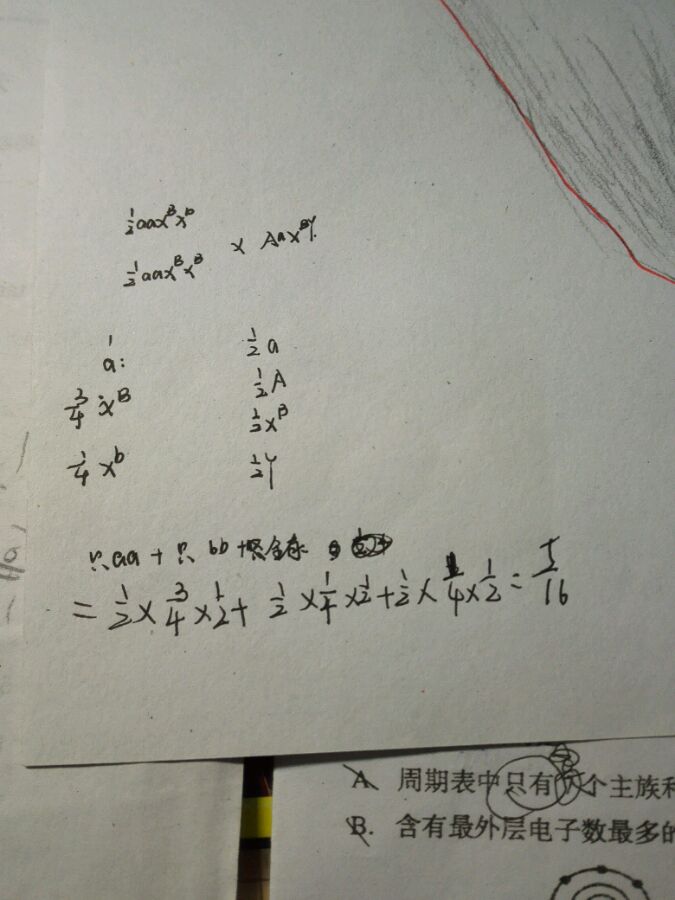 ½aaxᴮxᵇ
½aaxᴮxᴮ × AaxᴮY.
1
a: ½a
½A
¾ xᴮ ½xᴮ
¼ xᵇ ½Y
只aa + 只 bb +
= ½ × ¾ × ½ + ½ × ¼ × ½ + ½ × ¼ × ½ = 5/16
A 周期表中只有个主族和
B. 含有最外层电子数最多的